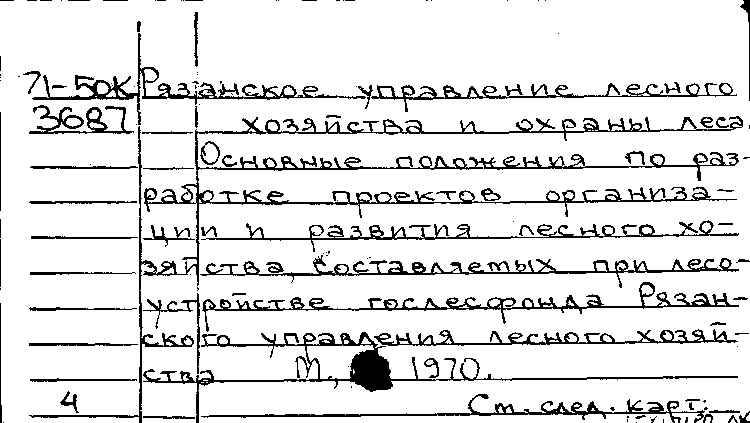 71-50К Рязанское управление лесного
3687 хозяйства и охраны леса.
Основные положения по раз-
работке проектов организа-
ции и развития лесного хо-
зяйства, составляемых при лесо-
устройстве гослесфонда Рязан-
ского управления лесного хозяй-
ства М., 1970.
4 См. след. карт.: